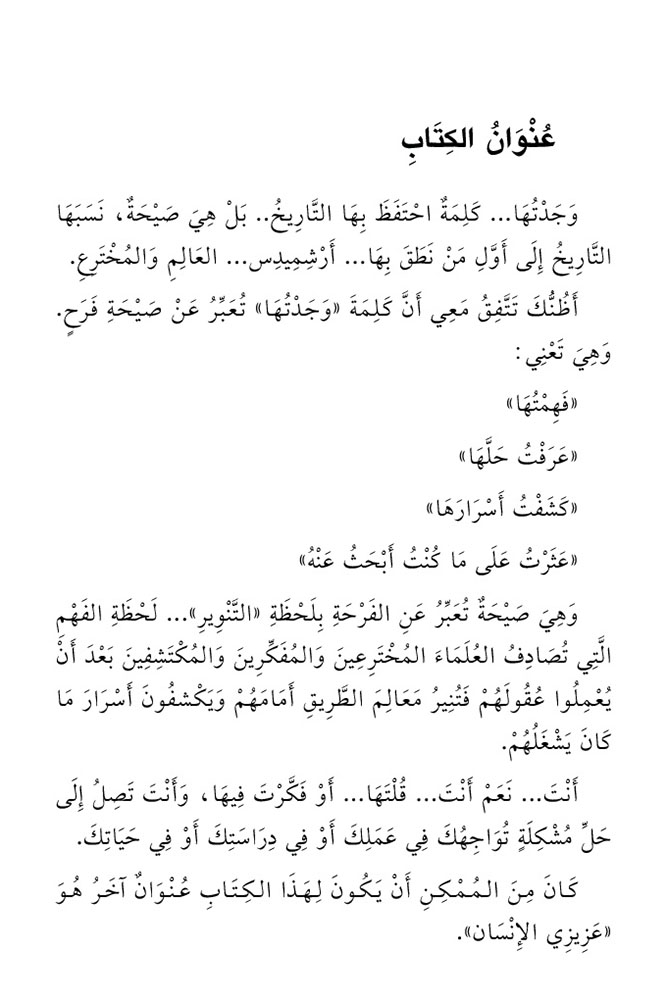 عُنْوَانُ الكِتَابِ
وَجَدْتُهَا... كَلِمَةٌ احْتَفَظَ بِهَا التَّارِيخُ.. بَلْ هِيَ صَيْحَةٌ، نَسَبَهَا
التَّارِيخُ إِلَى أَوَّلِ مَنْ نَطَقَ بِهَا... أَرْشِمِيدِس... العَالِمِ وَالمُخْتَرِعِ.
أَظُنُّكَ تَتَّفِقُ مَعِي أَنَّ كَلِمَةَ «وَجَدْتُهَا» تُعَبِّرُ عَنْ صَيْحَةِ فَرَحٍ.
وَهِيَ تَعْنِي:
«فَهِمْتُهَا»
«عَرَفْتُ حَلَّهَا»
«كَشَفْتُ أَسْرَارَهَا»
«عَثَرْتُ عَلَى مَا كُنْتُ أَبْحَثُ عَنْهُ»
وَهِيَ صَيْحَةٌ تُعَبِّرُ عَنِ الفَرْحَةِ بِلَحْظَةِ «التَّنْوِيرِ»... لَحْظَةِ الفَهْمِ
الَّتِي تُصَادِفُ العُلَمَاءَ المُخْتَرِعِينَ وَالمُفَكِّرِينَ وَالمُكْتَشِفِينَ بَعْدَ أَنْ
يُعْمِلُوا عُقُولَهُمْ فَتُنِيرُ مَعَالِمَ الطَّرِيقِ أَمَامَهُمْ وَيَكْشفُونَ أَسْرَارَ مَا
كَانَ يَشْغَلُهُمْ.
أَنْتَ... نَعَمْ أَنْتَ... قُلْتَهَا... أَوْ فَكَّرْتَ فِيهَا، وَأَنْتَ تَصِلُ إِلَى
حَلِّ مُشْكِلَةٍ تُوَاجِهُكَ فِي عَمَلِكَ أَوْ فِي دِرَاسَتِكَ أَوْ فِي حَيَاتِكَ.
كَانَ مِنَ المُمْكِنِ أَنْ يَكُونَ لِهَذَا الكِتَابِ عُنْوَانٌ آخَرُ هُوَ
«عَزِيزِي الإِنْسَان».